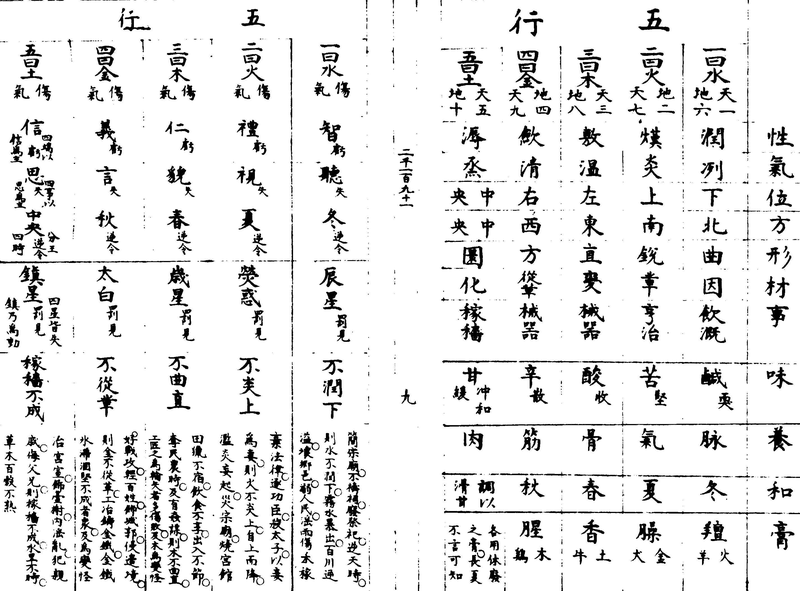 五行
性氣位方形材事味養和膏
一曰水 天一地六 潤 冽 下 北 曲 因 飲溉 鹹耎 脉 冬 羶 羊火
二曰火 地二天七 熯 炎 上 南 銳 革 亨冶 苦堅 氣 夏 臊 犬金
三曰木 天三地八 敷 溫 左 東 直 變 械器 酸收 骨 春 香 牛土
四曰金 地四天九 斂 清 右 西 方 從革 械器 辛散 筋 秋 腥 鷄木
五曰土 天五地十 溽 蒸 中央 中央 圜 化 稼穡 甘 冲和緩 肉 調以滑甘 各用休廢之膏長夏不言可知
二千一百九十一
九
五行
一曰水 傷氣 智虧 聽失 冬逆令 辰星罰見 不潤下
簡宗廟不禱祠廢祭祀逆天時
則水不潤下霧水暴出百川逆
溢壞鄉邑溺人民淫雨傷禾稼
二曰火 傷氣 禮虧 視失 夏逆令 熒惑罰見 不炎上
棄法律逐功臣殺太子以妾
為妻則火不炎上自上而降
濫炎妄起災宗廟燒宮館
三曰木 傷氣 仁虧 貌失 春逆令 歲星罰見 不曲直
田獵不宿飲食不享出入不節
奪民農時及有姦謀則木不曲直
工匠之為輪矢者多傷敗及木為變怪
四曰金 傷氣 義虧 言失 秋逆令 太白罰見 不從革
好戰攻輕百姓飾城郭侵邊境
則金不從革冶鑄金鐵金鐵
冰滯涸堅不成者衆及為變怪
五曰土 傷氣 信虧 四端以信為主 思失 四事以思為主 中央逆令 分王四時 鎮星罰見 四星皆失鎮乃為動 稼穡不成
治宮室飾臺榭內淫亂犯親
戚侮父兄則稼穡不成水旱不時
草木百穀不熟